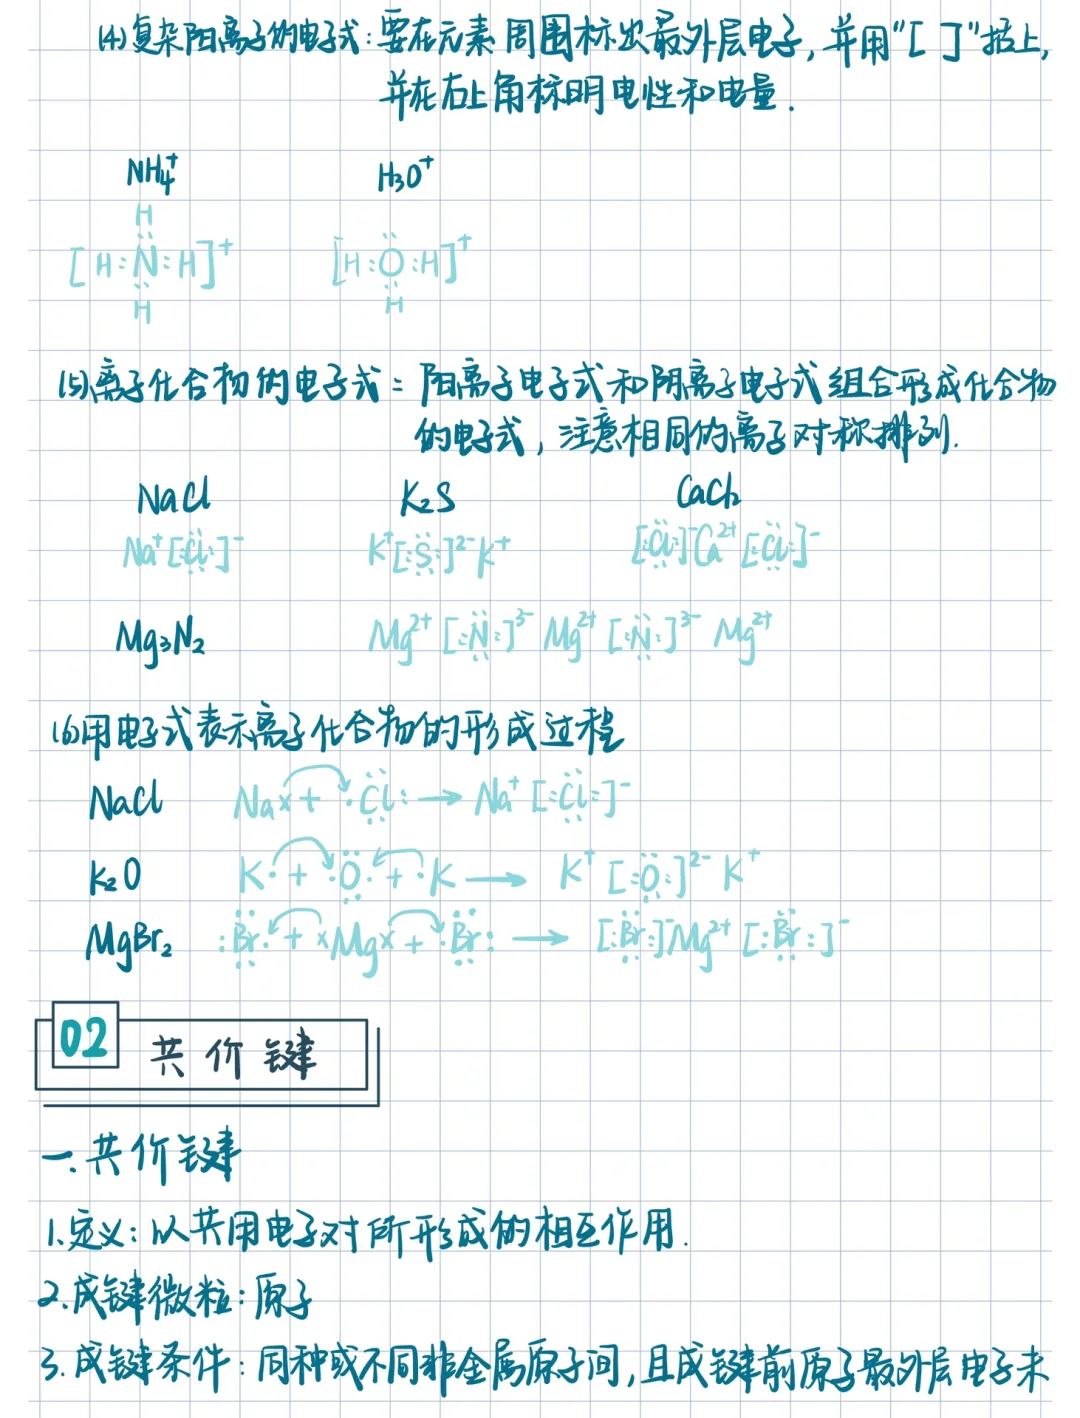 (4)复杂阳离子的电子式:要在元素周围标出最外层电子,并用"[ ]"括上,
并在右上角标明电性和电量.
NH₄⁺ H₃O⁺
H
[H:N:H]⁺ [H:O:H]⁺
H H
(5)离子化合物的电子式:阳离子电子式和阴离子电子式组合形成化合物
的电子式,注意相同的离子对称排列.
NaCl K₂S CaCl₂
Na⁺[:Cl:]⁻ K⁺[:S:]²⁻K⁺ [:Cl:]⁻Ca²⁺[:Cl:]⁻
Mg₃N₂ Mg²⁺[:N:]³⁻Mg²⁺[:N:]³⁻Mg²⁺
(6)用电子式表示离子化合物的形成过程
NaCl Na×+·Cl:→Na⁺[:Cl:]⁻
K₂O K·+·O·+·K→K⁺[:O:]²⁻K⁺
MgBr₂ :Br·+×Mg×+·Br:→[:Br:]⁻Mg²⁺[:Br:]⁻
02 共价键
一.共价键
1.定义:以共用电子对所形成的相互作用.
2.成键微粒:原子
3.成键条件:同种或不同非金属原子间,且成键前原子最外层电子未